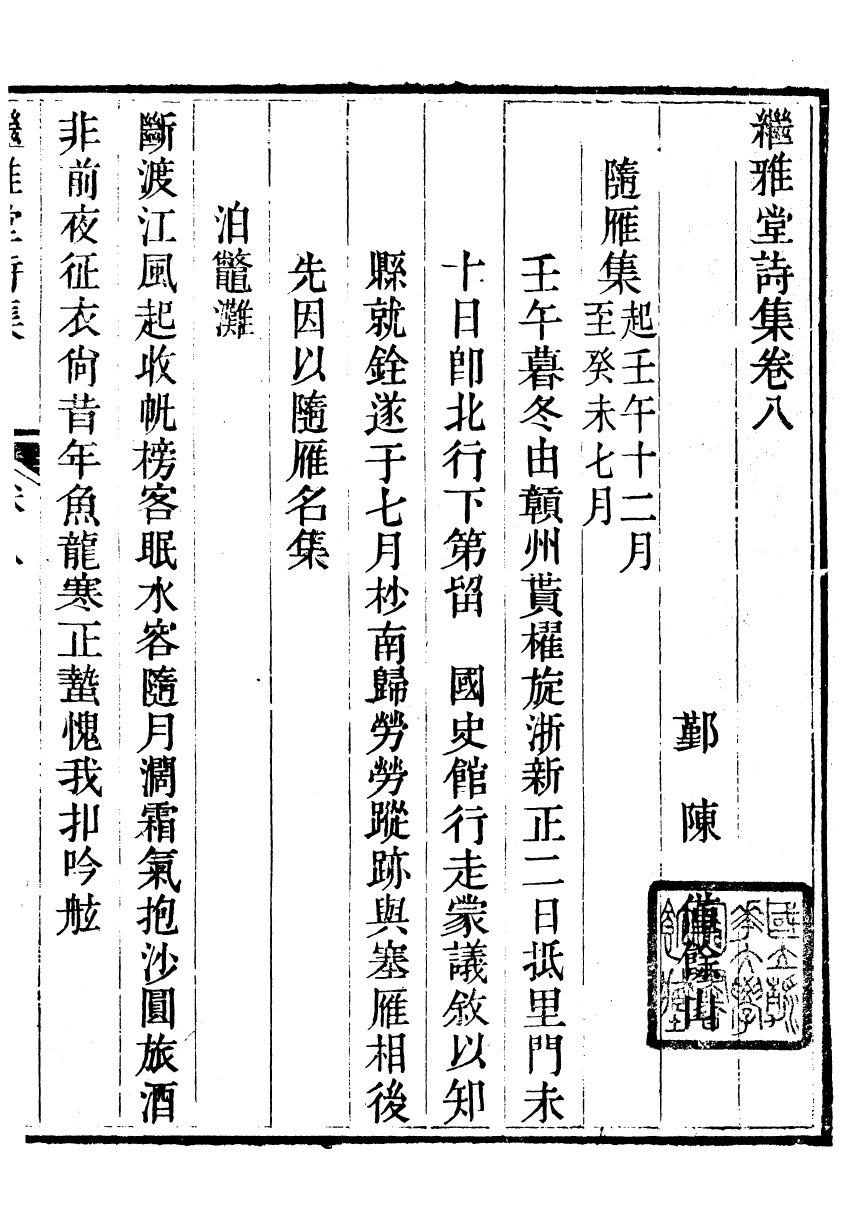 繼雅堂詩集卷八
鄞　陳　僅　餘山
隨雁集
起壬午十二月
至癸未七月
壬午暮冬由贛州貰櫂旋浙新正二日抵里門未
十日卽北行下第留　國史館行走蒙議敘以知
縣就銓遂于七月杪南歸勞勞蹤跡與塞雁相後
先因以隨雁名集
泊鼈灘
斷渡江風起收帆榜客眠水容隨月濶霜氣抱沙圓旅酒
非前夜征衣尙昔年魚龍寒正蟄愧我扣吟舷
繼雅堂詩集
卷八